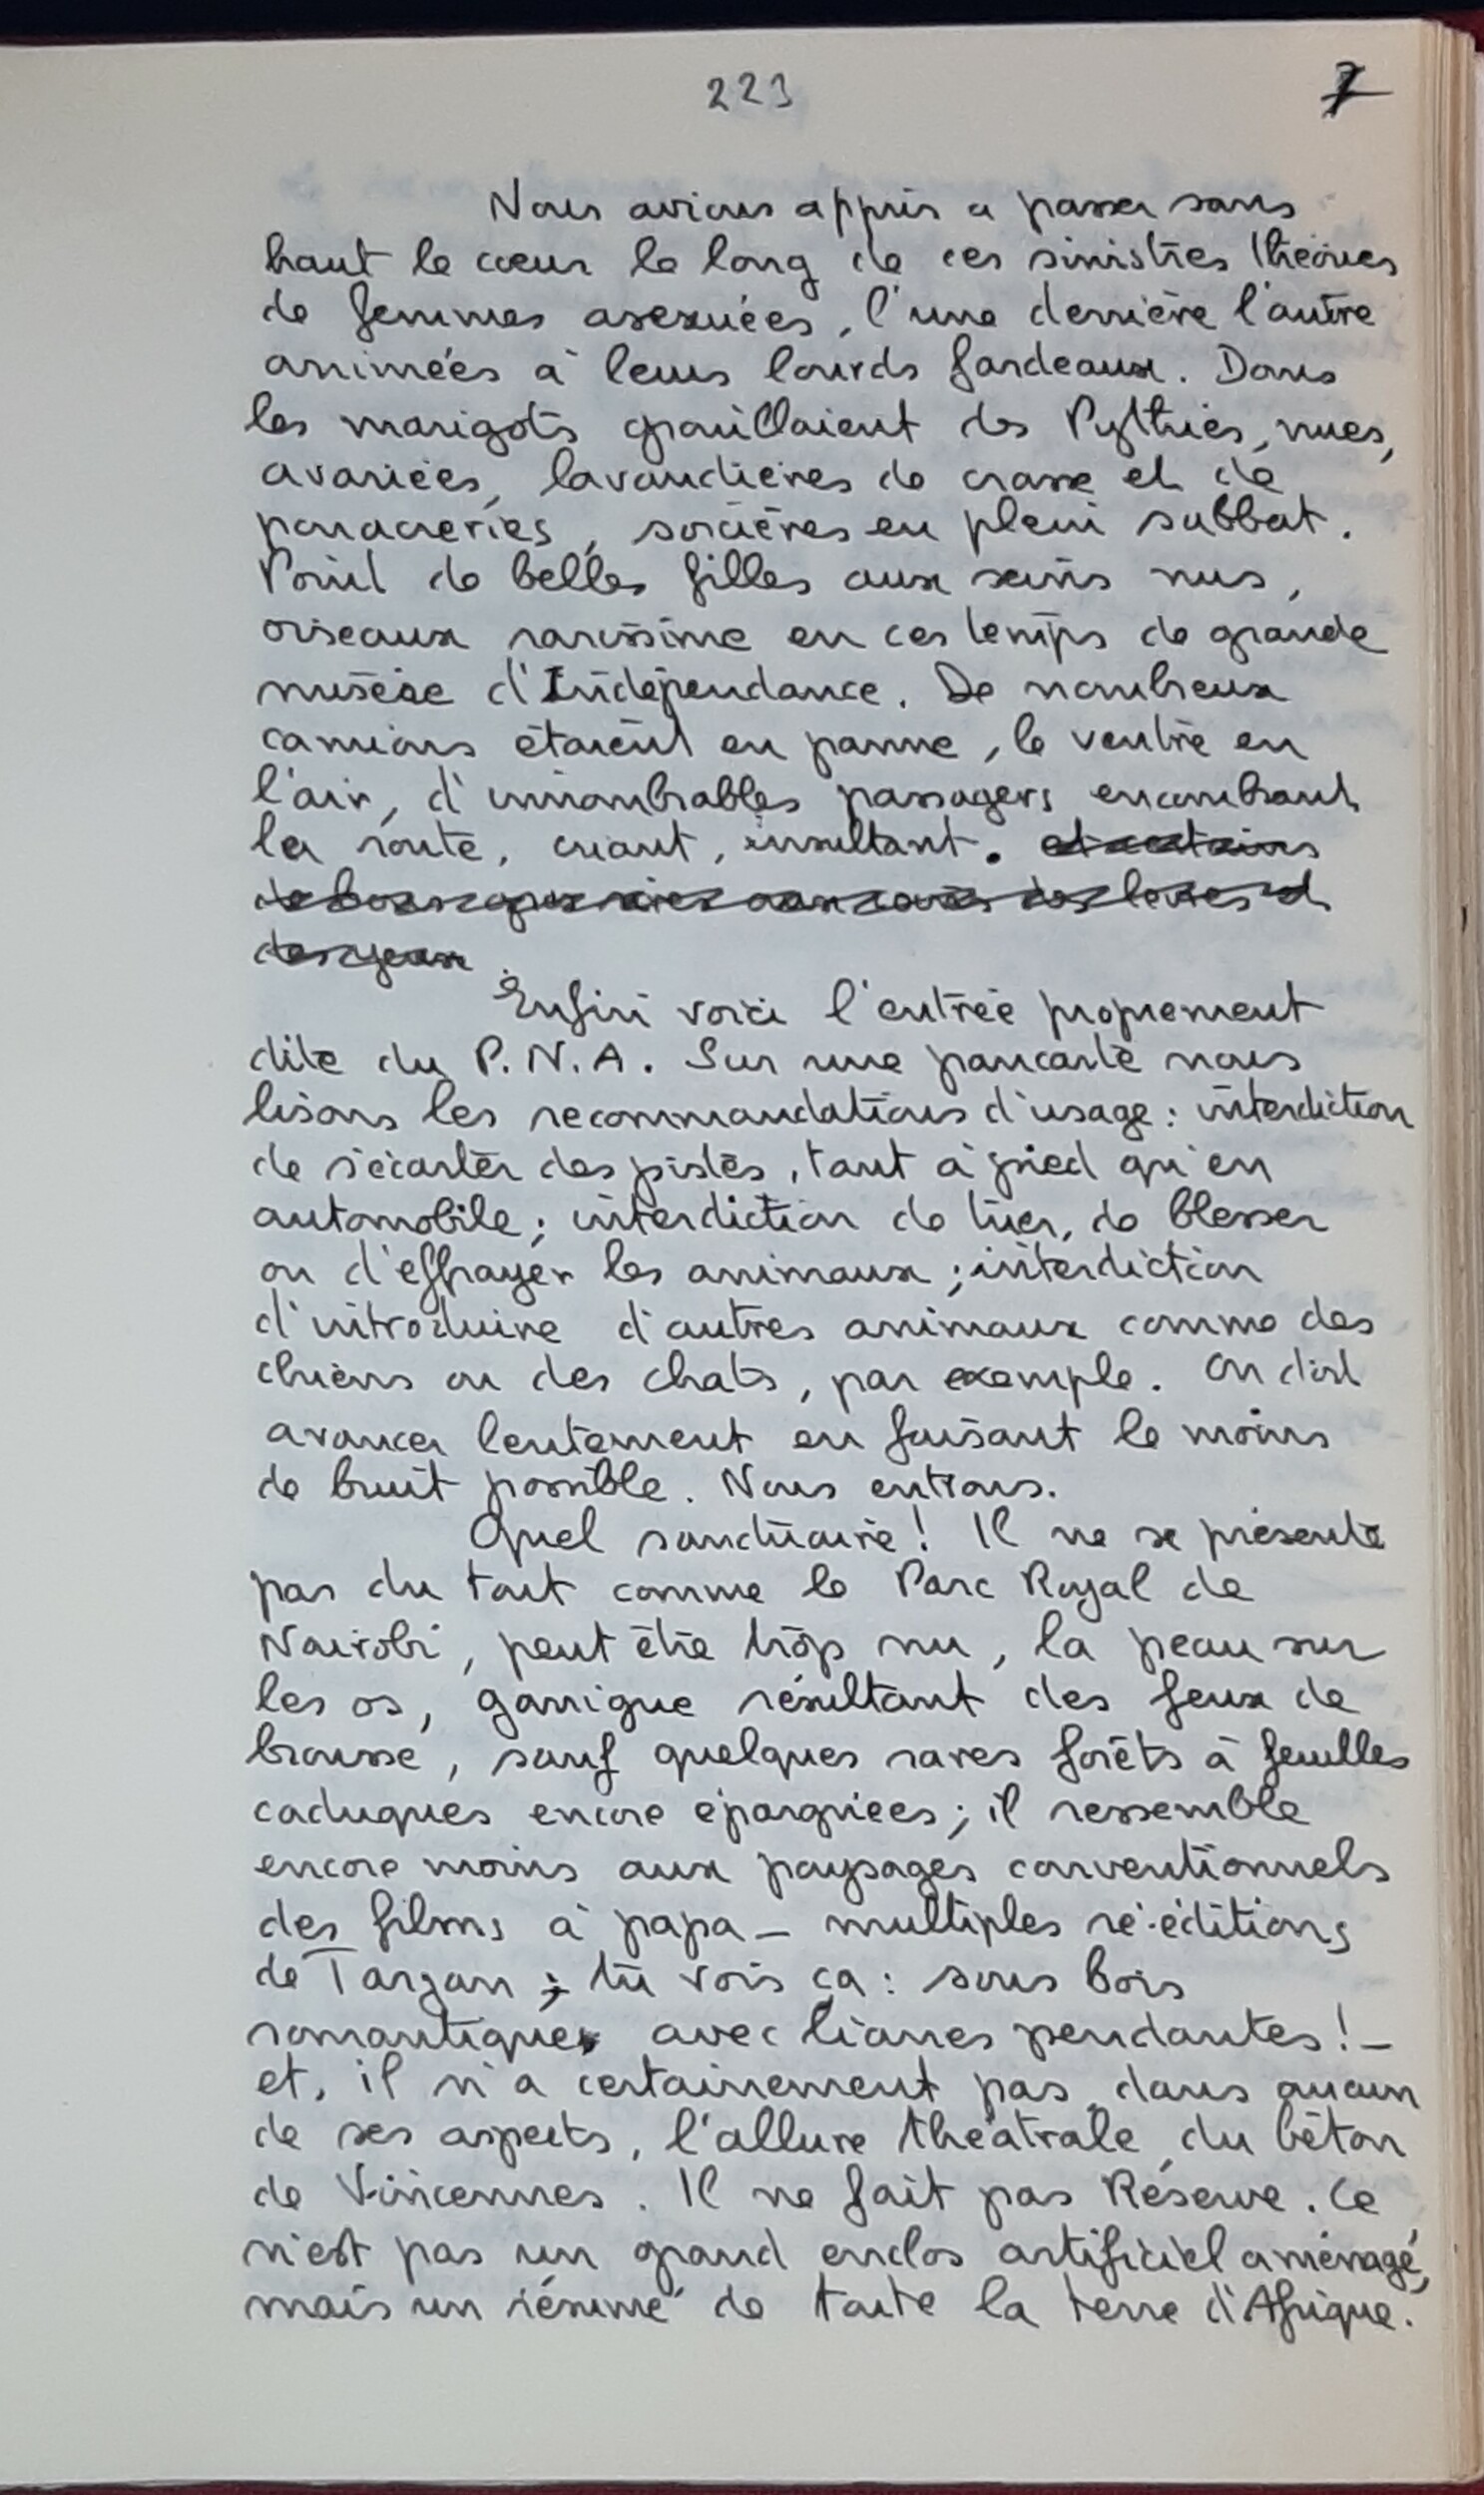 223
7
Nous avions appris a passer sans
haut le cœur le long de ces sinistres théories
de femmes asexuées, l'une derrière l'autre
arrimées à leurs lourds fardeaux. Dans
les marigots grouillaient des Pythies, nues,
avariées, lavandières de crasse et de
, sorcières en plein sabbat.
Point de belles filles aux seins nus,
oiseaux rarissime en ces temps de grande
misère d'Indépendance. De nombreux
camions étaient en panne, le ventre en
l'air, d'innombrables passagers encombrant
la route, criant, insultant. et certains
des lèvres et
des yeux
Enfin voici l'entrée proprement
dite du P.N.A. Sur une pancarte nous
lisons les recommandations d'usage : interdiction
de s'écarter des pistes, tant à pied qu'en
automobile ; interdiction de tuer, de blesser
ou d'effrayer les animaux ; interdiction
d'introduire d'autres animaux comme des
chiens ou des chats, par exemple. On doit
avancer lentement en faisant le moins
de bruit possible. Nous entrons.
Quel sanctuaire ! Il ne se présente
pas du tout comme le Parc Royal de
Nairobi, peut être trop nu, la peau sur
les os, garrigue résultant des feux de
brousse, sauf quelques rares forêts à feuilles
caduques encore épargnées ; il ressemble
encore moins aux paysages conventionnels
des films à papa – multiples ré-éditions
de Tarzan ; tu vois ça : sous bois
romantiques avec lianes pendantes ! –
et, il n'a certainement pas, dans aucun
de ses aspects, l'allure théâtrale, du béton
de Vincennes. Il ne fait pas Réserve. Ce
n'est pas un grand enclos artificiel aménagé,
mais un résumé de toute la terre d'Afrique.